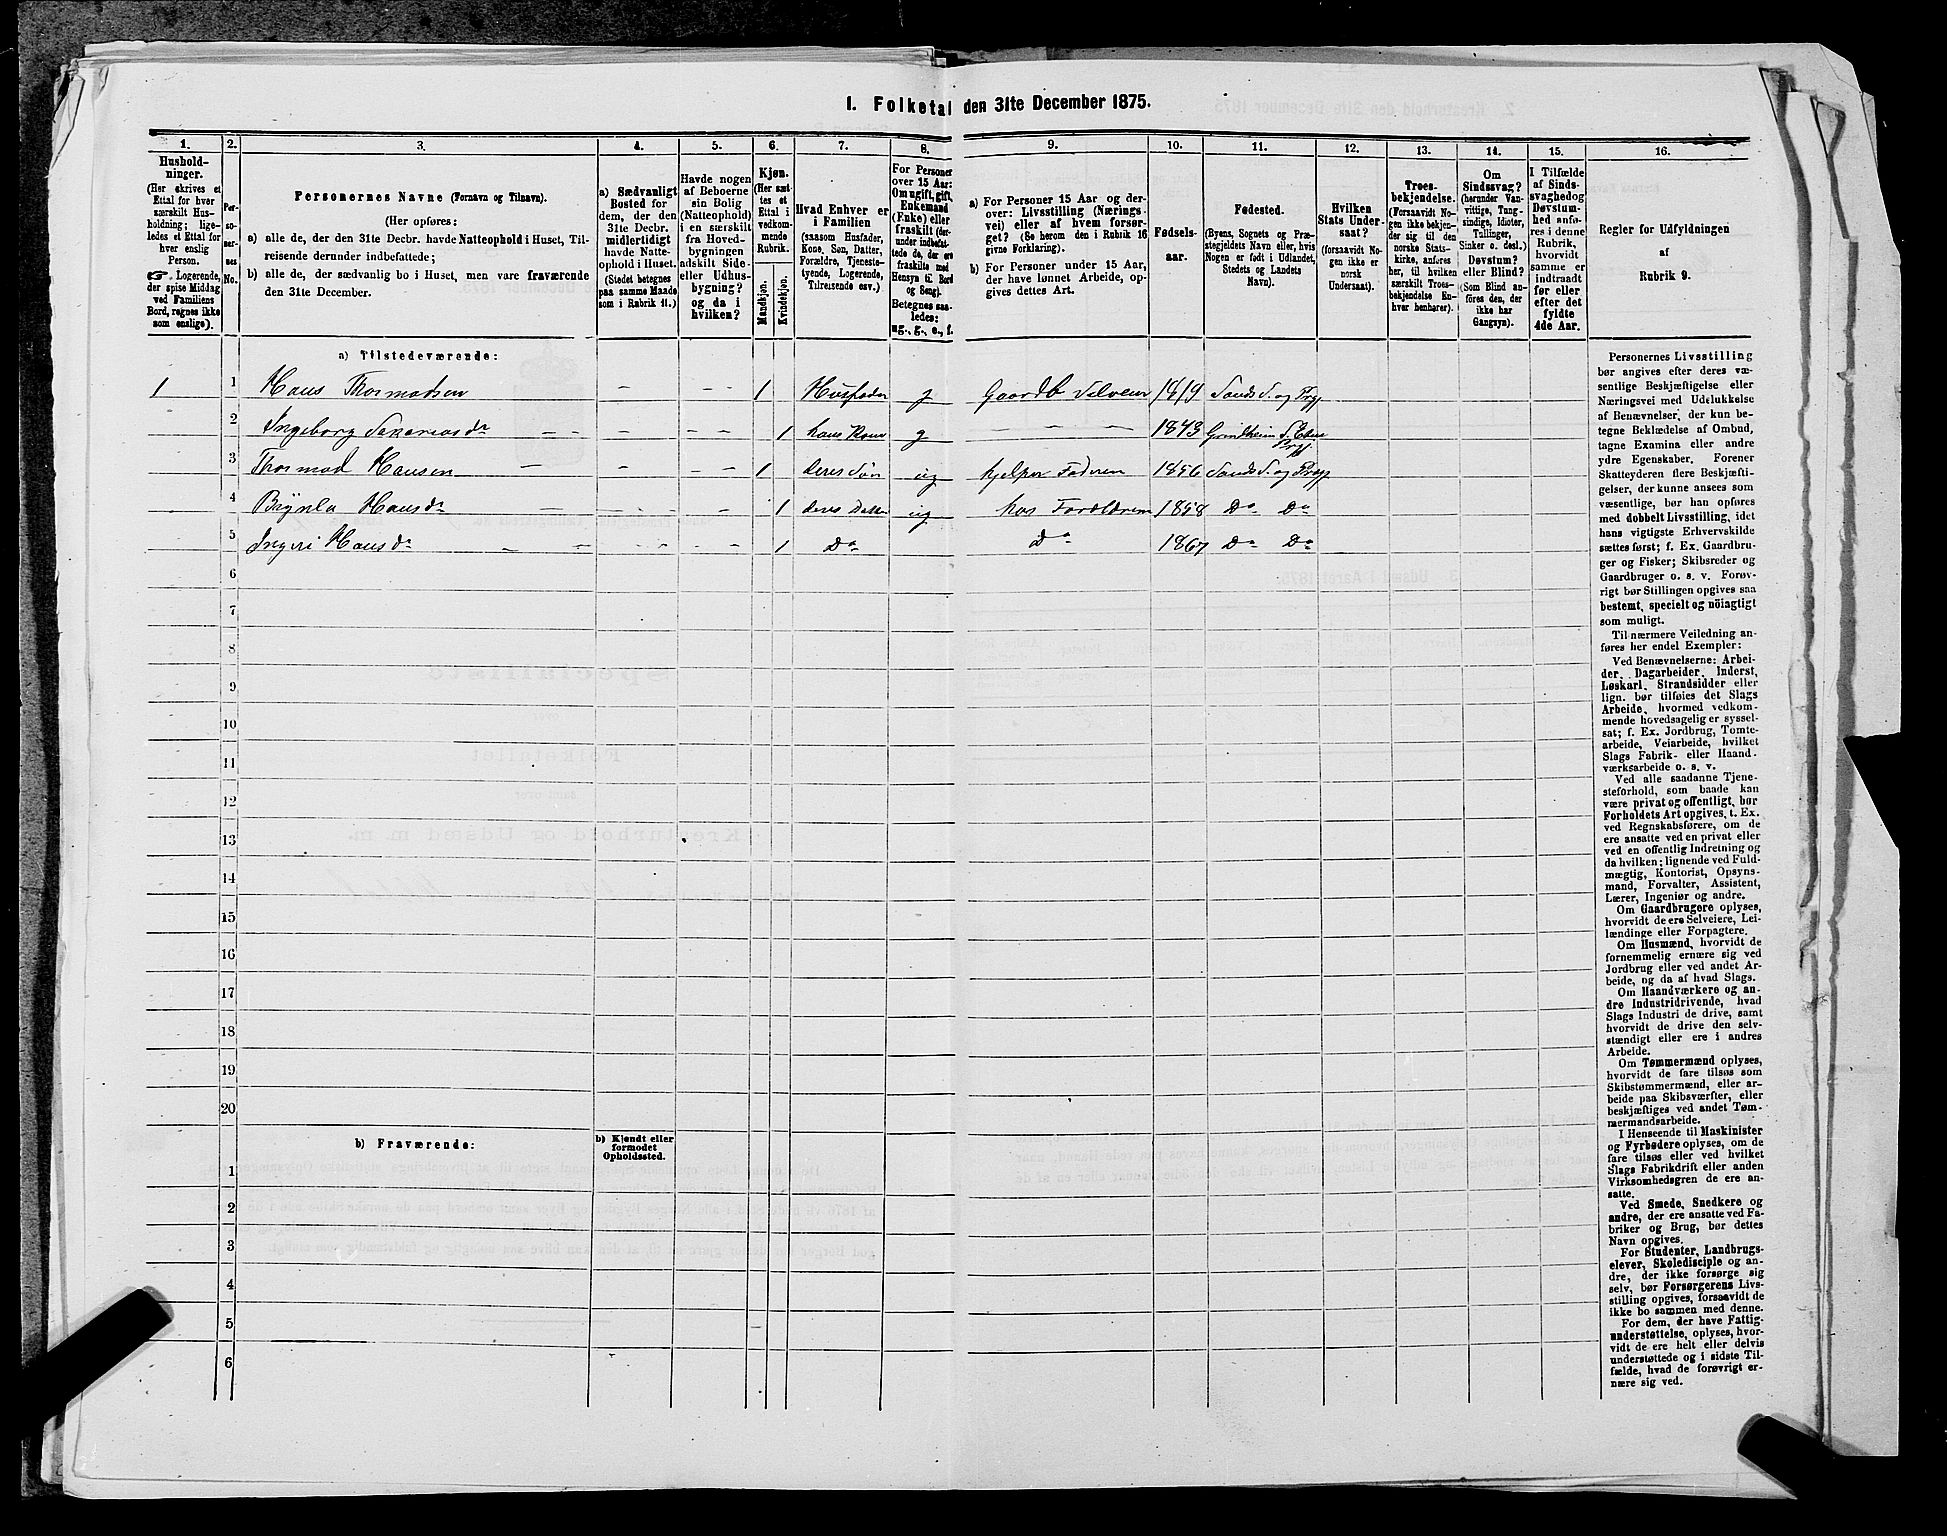 1. Folketal den 31te December 1875.
1. 2. 3. 4. 5. 6. 7. 8. 9. 10. 11. 12. 13. 14. 15. 16.
Husholdninger.
(Her skrives et
Ettal for hver
særskilt Husholdning;
ligeledes et Ettal for
hver enslig
Person.
☞ Logerende,
der spise Middag
ved Familiens
Bord, regnes ikke
som enslige).
Personernes No.
Personernes Navne (Fornavn og Tilnavn).
(Her opføres:
a) alle de, der den 31te Decbr. havde Natteophold i Huset, Tilreisende derunder indbefattede;
b) alle de, der sædvanlig bo i Huset, men vare fraværende
den 31te December.
a) Sædvanligt
Bosted for
dem, der den
31te Decbr.
midlertidigt
havde Natteophold i Huset.
(Stedet betegnes
paa samme Maade
som i Rubrik 11.)
Havde nogen
af Beboerne
sin Bolig
(Natteophold)
i en særskilt
fra Hovedbygningen
adskilt Side-
eller Udhusbygning?
og da i
hvilken?
Kjøn.
(Her sættes et
Ettal i
vedkommende
Rubrik.
Mandkjøn.
Kvindekjøn.
Hvad Enhver er
i Familien
(saasom Husfader,
Kone, Søn, Datter,
Forældre, Tjenestetyende, Logerende,
Tilreisende osv.)
For Personer
over 15 Aar:
Om ugift, gift,
Enkemand
(Enke) eller
fraskilt (derunder indbefattede, de, der ere
fraskilte med
Hensyn til Bord
og Seng).
Betegnes saaledes:
ug., g., e., f.
a) For Personer 15 Aar og derover: Livsstilling (Næringsvei) eller af hvem forsørget? (Se herom den i Rubrik 16
givne Forklaring).
b) For Personer under 15 Aar,
der have lønnet Arbeide, opgives dettes Art.
Fødselsaar.
Fødested.
(Byens, Sognets og Præstegjeldets Navn eller, hvis
Nogen er født i Udlandet,
Stedets og Landets
Navn).
Hvilken
Stats Undersaat?
(forsaavidt Nogen ikke er
norsk
Undersaat).
Troesbekjendelse.
(Forsaavidt Nogen ikke bekjender sig til den
norske Statskirke, anføres
her, til hvilken
særskilt Troesbekjendelse Enhver henhører).
Om
Sindssvag?
(herunder Vanvittige, Tungsindige, Idioter,
Tullinger,
Sinker o. desl.)
Døvstum?
eller Blind?
(Som Blind anføres den, der
ikke har
Gangsyn).
I Tilfælde
af Sindssvaghed og
Døvstumhed anføres i denne
Rubrik,
hvorvidt
samme er
indtraadt
før eller
efter det
fyldte
4de Aar.
Regler for Udfyldningen
af
Rubrik 9.
a) Tilstedeværende:
1 1 Hans Thormodsen - - - 1 Husfader g Gaardb Selveier 1819 Sands S. og Prgj
2 Ingeborg Sakariasdr 1 hans Kone g - - - 1843 Grindheim S. Prgj
3 Thormod Hansen - - - - - 1 deres Søn ug hjelper Faderen 1856 Sands S. og Prgj
4 Hansdr - - - - - 1 deres Datter ug hos Forældrene 1858 Do Do
5 Ingeri Hansdr - - - - - - 1 Do Do 1867 Do Do
6
7
8
9
10
11
12
13
14
15
16
17
18
19
20
b) Fraværende:
b) Kjendt eller
formodet
Opholdssted.
1
2
3
4
5
6
Personernes Livsstilling
bør angives efter deres væsentlige Beskjæftigelse eller
Næringsvei med Udelukkelse
af Benævnelser, der kun betegne Beklædelse af Ombud,
tagne Examina eller andre
ydre Egenskaber. Forener
Skatteyderen flere Beskjæftigelser, der kunne ansees som
væsentlige, bør han opføres
med dobbelt Livsstilling, idet
hans vigtigste Erhvervskilde
sættes først; f. Ex. Gaardbruger og Fisker; Skibsreder og
Gaardbruger o. s. v. Forøvrigt bør Stillingen opgives saa
bestemt, specielt og nöiagtigt
som muligt.
Til nærmere Veiledning anføres her endel Exempler:
Ved Benævnelserne: Arbeider, Dagarbeider, Inderst,
Løskarl, Strandsidder eller
lign. bør tilføies det Slags
Arbeide, hvormed vedkommende hovedsagelig er sysselsat; f. Ex. Jordbrug, Tomtearbeide, Veiarbeide, hvilket
Slags Fabrik- eller Haandværksarbeide o. s. v.
Ved alle saadanne Tjenesteforhold, som baade kan
være privat og offentligt, bør
Forholdets Art opgives, t. Ex.
ved Regnskabsførere, om de
ere ansatte ved en privat eller
ved en offentlig Indretning og
da hvilken; lignende ved Fuldmægtig, Kontorist, Opsynsmand, Forvalter, Assistent,
Lærer, Ingeniør og andre.
Om Gaardbrugere oplyses,
hvorvidt de ere Selveiere, Leilændinge eller Forpagtere.
Om Husmænd, hvorvidt de
fornemmelig ernære sig ved
Jordbrug eller ved andet Arbeide, og da af hvad Slags.
Om Haandværkere og andre Industridrivende, hvad
Slags Industri de drive, samt
hvorvidt de drive den selvstændigt eller ere i andres
Arbeide.
Om Tømmermænd oplyses,
hvorvidt de fare tilsøs som
Skibstømmermænd, eller arbeide paa Skibsværfter, eller
beskjæftiges ved andet Tømmermandsarbeide.
I Henseende til Maskinister
og Fyrbødere oplyses, om de
fare tilsøs eller ved hvilket
Slags Fabrikdrift eller anden
Virksomhedsgren de ere ansatte.
Ved Smede, Snedkere og
andre, der ere ansatte ved Fabriker og Brug, bør dettes
Navn opgives.
For Studenter, Landbrugselever, Skoledisciple og andre, der ikke forsørge sig
selv, bør Forsørgerens Livsstilling opgives, forsaavidt de
ikke bo sammen med denne.
For dem, der have Fattigunderstøttelse, oplyses, hvorvidt de ere helt eller delvis
understøttede og i sidste Tilfælde, hvad de forøvrigt ernære sig ved.